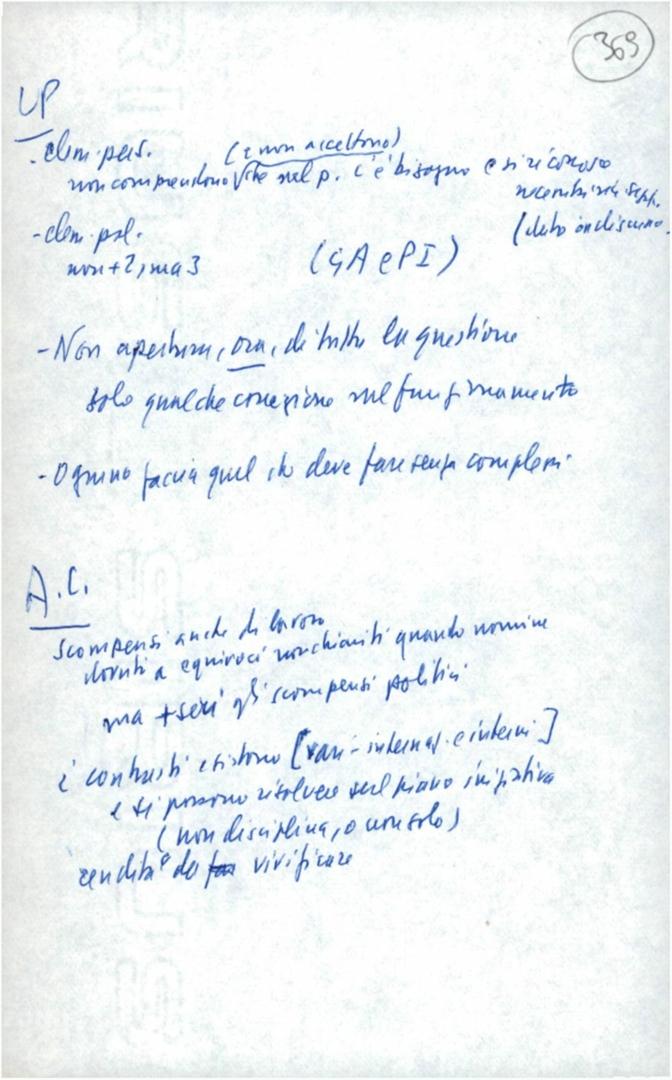 369
LP
- elem. pers. (e non accettono)
non comprendono che nel p. c'è bisogno e si riconosce
(detto ondiscuno
- elem. pol.
non + 2, ma 3 (GA e PI)
- Non apertura, ora, di tutta la questione
solo qualche correzione sul funzionamento
- Ognuno faccia quel che deve fare senza complessi
A.C.
scompensi anche di lavoro
dovuti a equivoci non chiariti quando nomine
ma + seri gli scompensi politici
i contrasti esistono [vari - internaz. e interni]
e si possono risolvere sul piano iniziativa
(non disciplina, o non solo)
rendita da vivificare